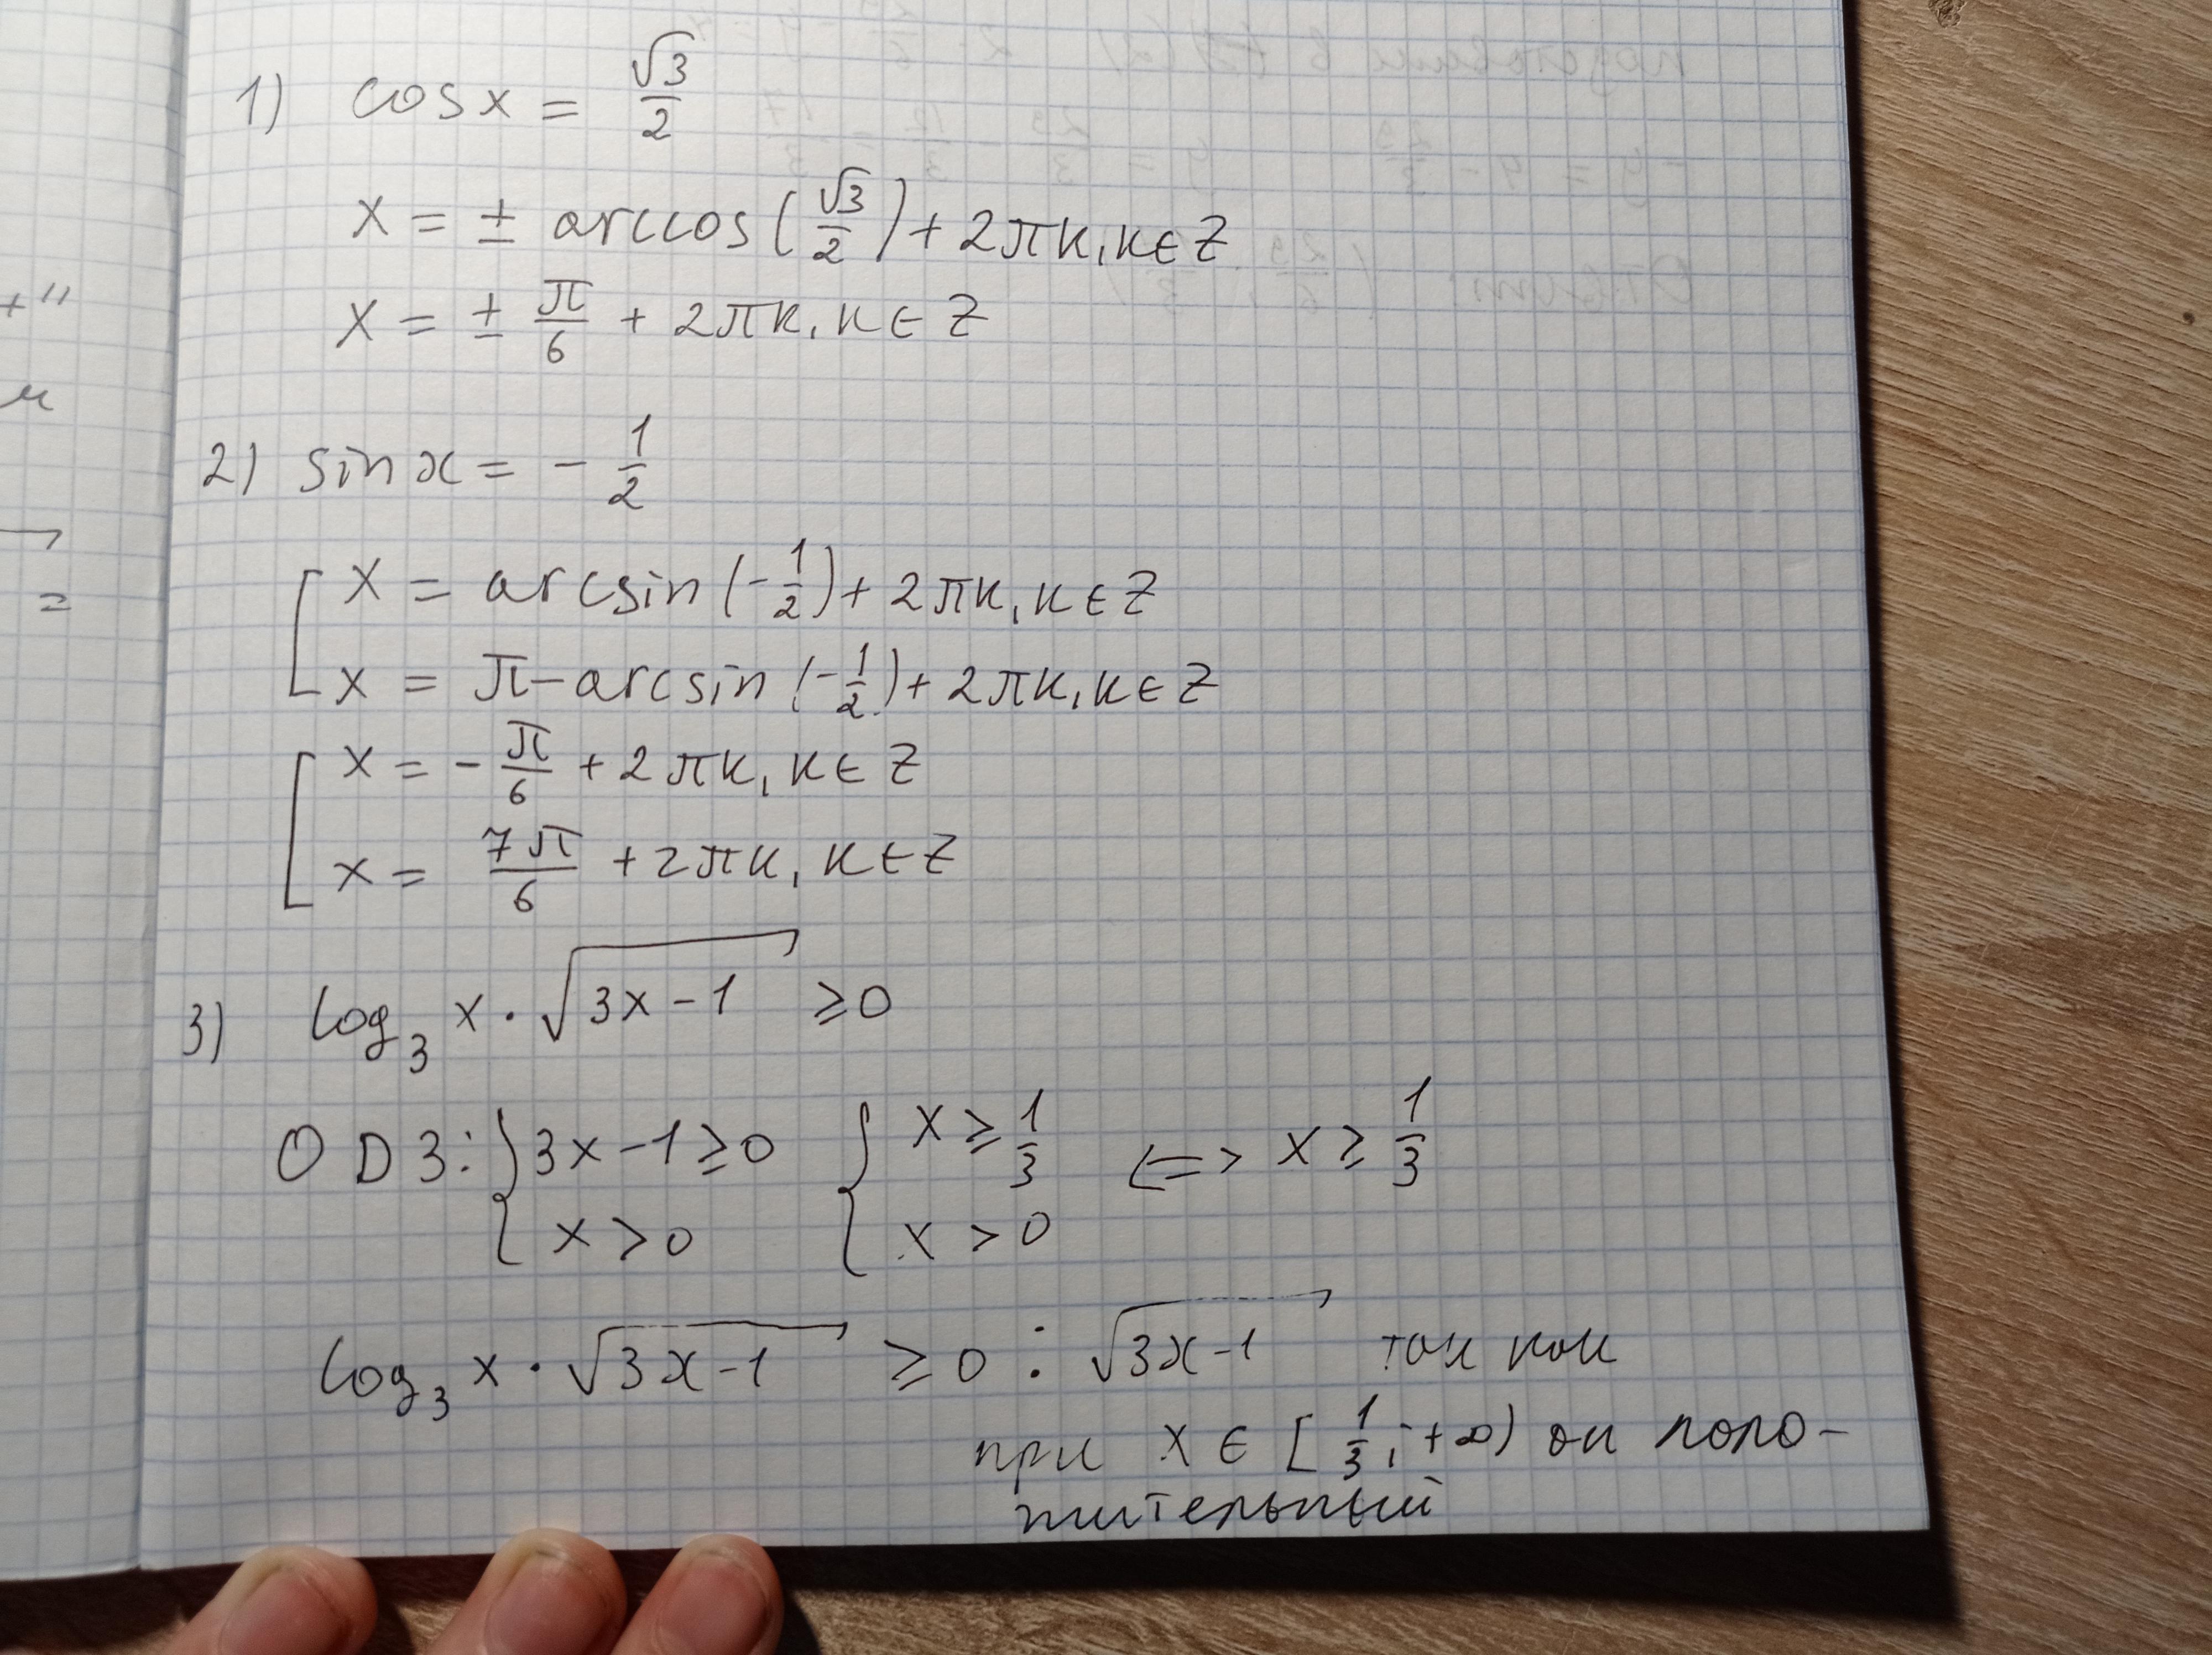 1) cos x = √3/2
x = ± arccos(√3/2) + 2πк, к ∈ Z
x = ± π/6 + 2πк, к ∈ Z
2) sin x = - 1/2
[ x = arcsin(-1/2) + 2πк, к ∈ Z
x = π - arcsin(-1/2) + 2πк, к ∈ Z
[ x = - π/6 + 2πк, к ∈ Z
x = 7π/6 + 2πк, к ∈ Z
3) log₃ x · √(3x-1) ≥ 0
ОДЗ: { 3x-1 ≥ 0 { x ≥ 1/3 <=> x ≥ 1/3
x > 0 x > 0
log₃ x · √(3x-1) ≥ 0 : √(3x-1) так как
при x ∈ [1/3; +∞) он поло-
жительный